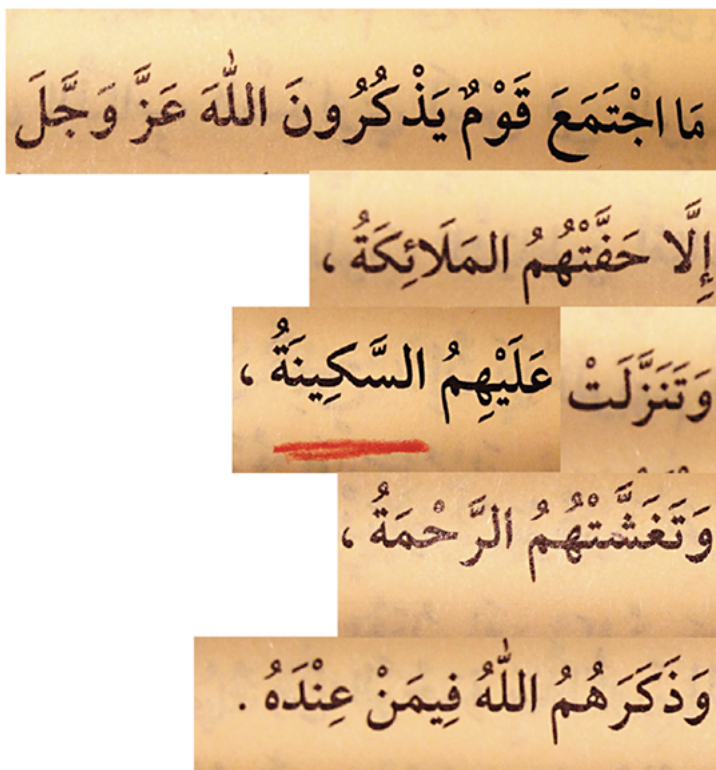 مَا اجْتَمَعَ قَوْمٌ يَذْكُرُونَ اللهَ عَزَّ وَجَّلَ
إِلَّا حَفَّتْهُمُ المَلَائِكَةُ ،
وَتَنَزَّلَتْ عَلَيْهِمُ السَّكِينَةُ ،
وَتَغَشَّتْهُمُ الرَّحْمَةُ ،
وَذَكَرَهُمُ اللهُ فِيمَنْ عِنْدَهُ .